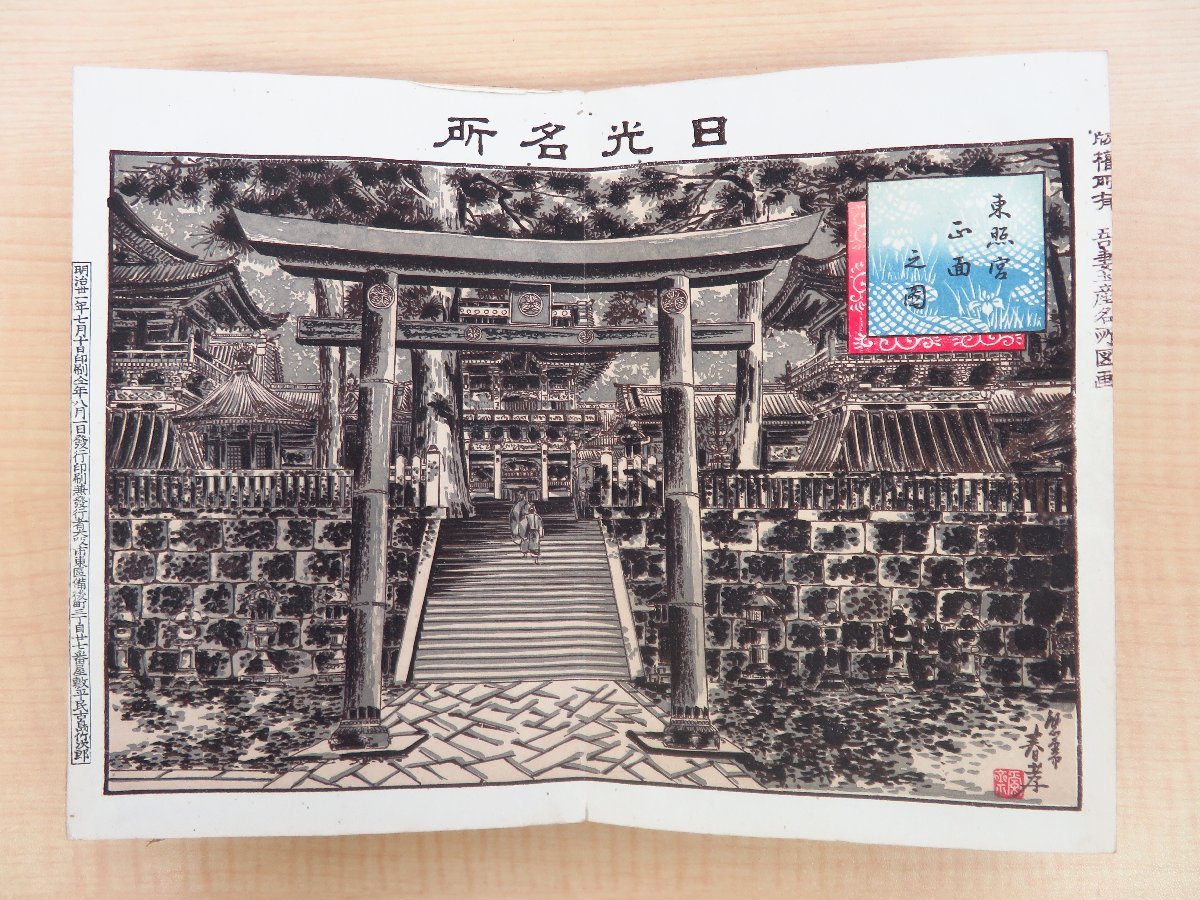 日光名所
東照宮
正面
之圖
版権所有 吾妻土産名所図画
明治廿一年七月十日印刷仝年八月二日發行印刷兼發行者大阪市東區備後町三丁目廿七番屋敷平民古島竹次郎
春業